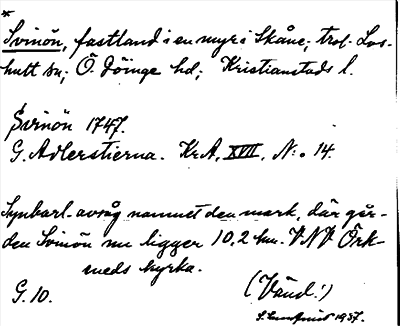 *
Svinön, fastland i en myr i Skåne; trol. Los-
hult sn; Ö. Göinge hd; Kristianstads l.
Svinön 1747.
G. Adlerstierna. Kr.A, XVII, N:o 14.
Synbarl. avsåg namnet den mark, där går-
den Svinön nu ligger 10,2 km. VNV Örk-
neds kyrka.
G. 10.
(Vänd!)
1937.